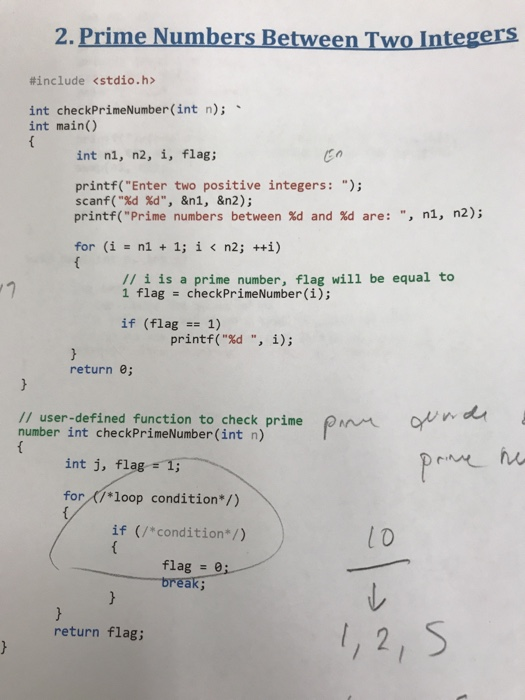 2. Prime Numbers Between Two Integers
#include <stdio.h>
int checkPrimeNumber(int n);
int main()
{
int n1, n2, i, flag;
printf("Enter two positive integers: ");
scanf("%d %d", &n1, &n2);
printf("Prime numbers between %d and %d are: ", n1, n2);
for (i = n1 + 1; i < n2; ++i)
{
// i is a prime number, flag will be equal to
1 flag = checkPrimeNumber(i);
if (flag == 1)
printf("%d ", i);
}
return 0;
}
// user-defined function to check prime
number int checkPrimeNumber(int n)
{
int j, flag = 1;
for (/*loop condition*/)
{
if (/*condition*/)
{
flag = 0;
break;
}
}
return flag;
}
prime
10
↓
1, 2, 5